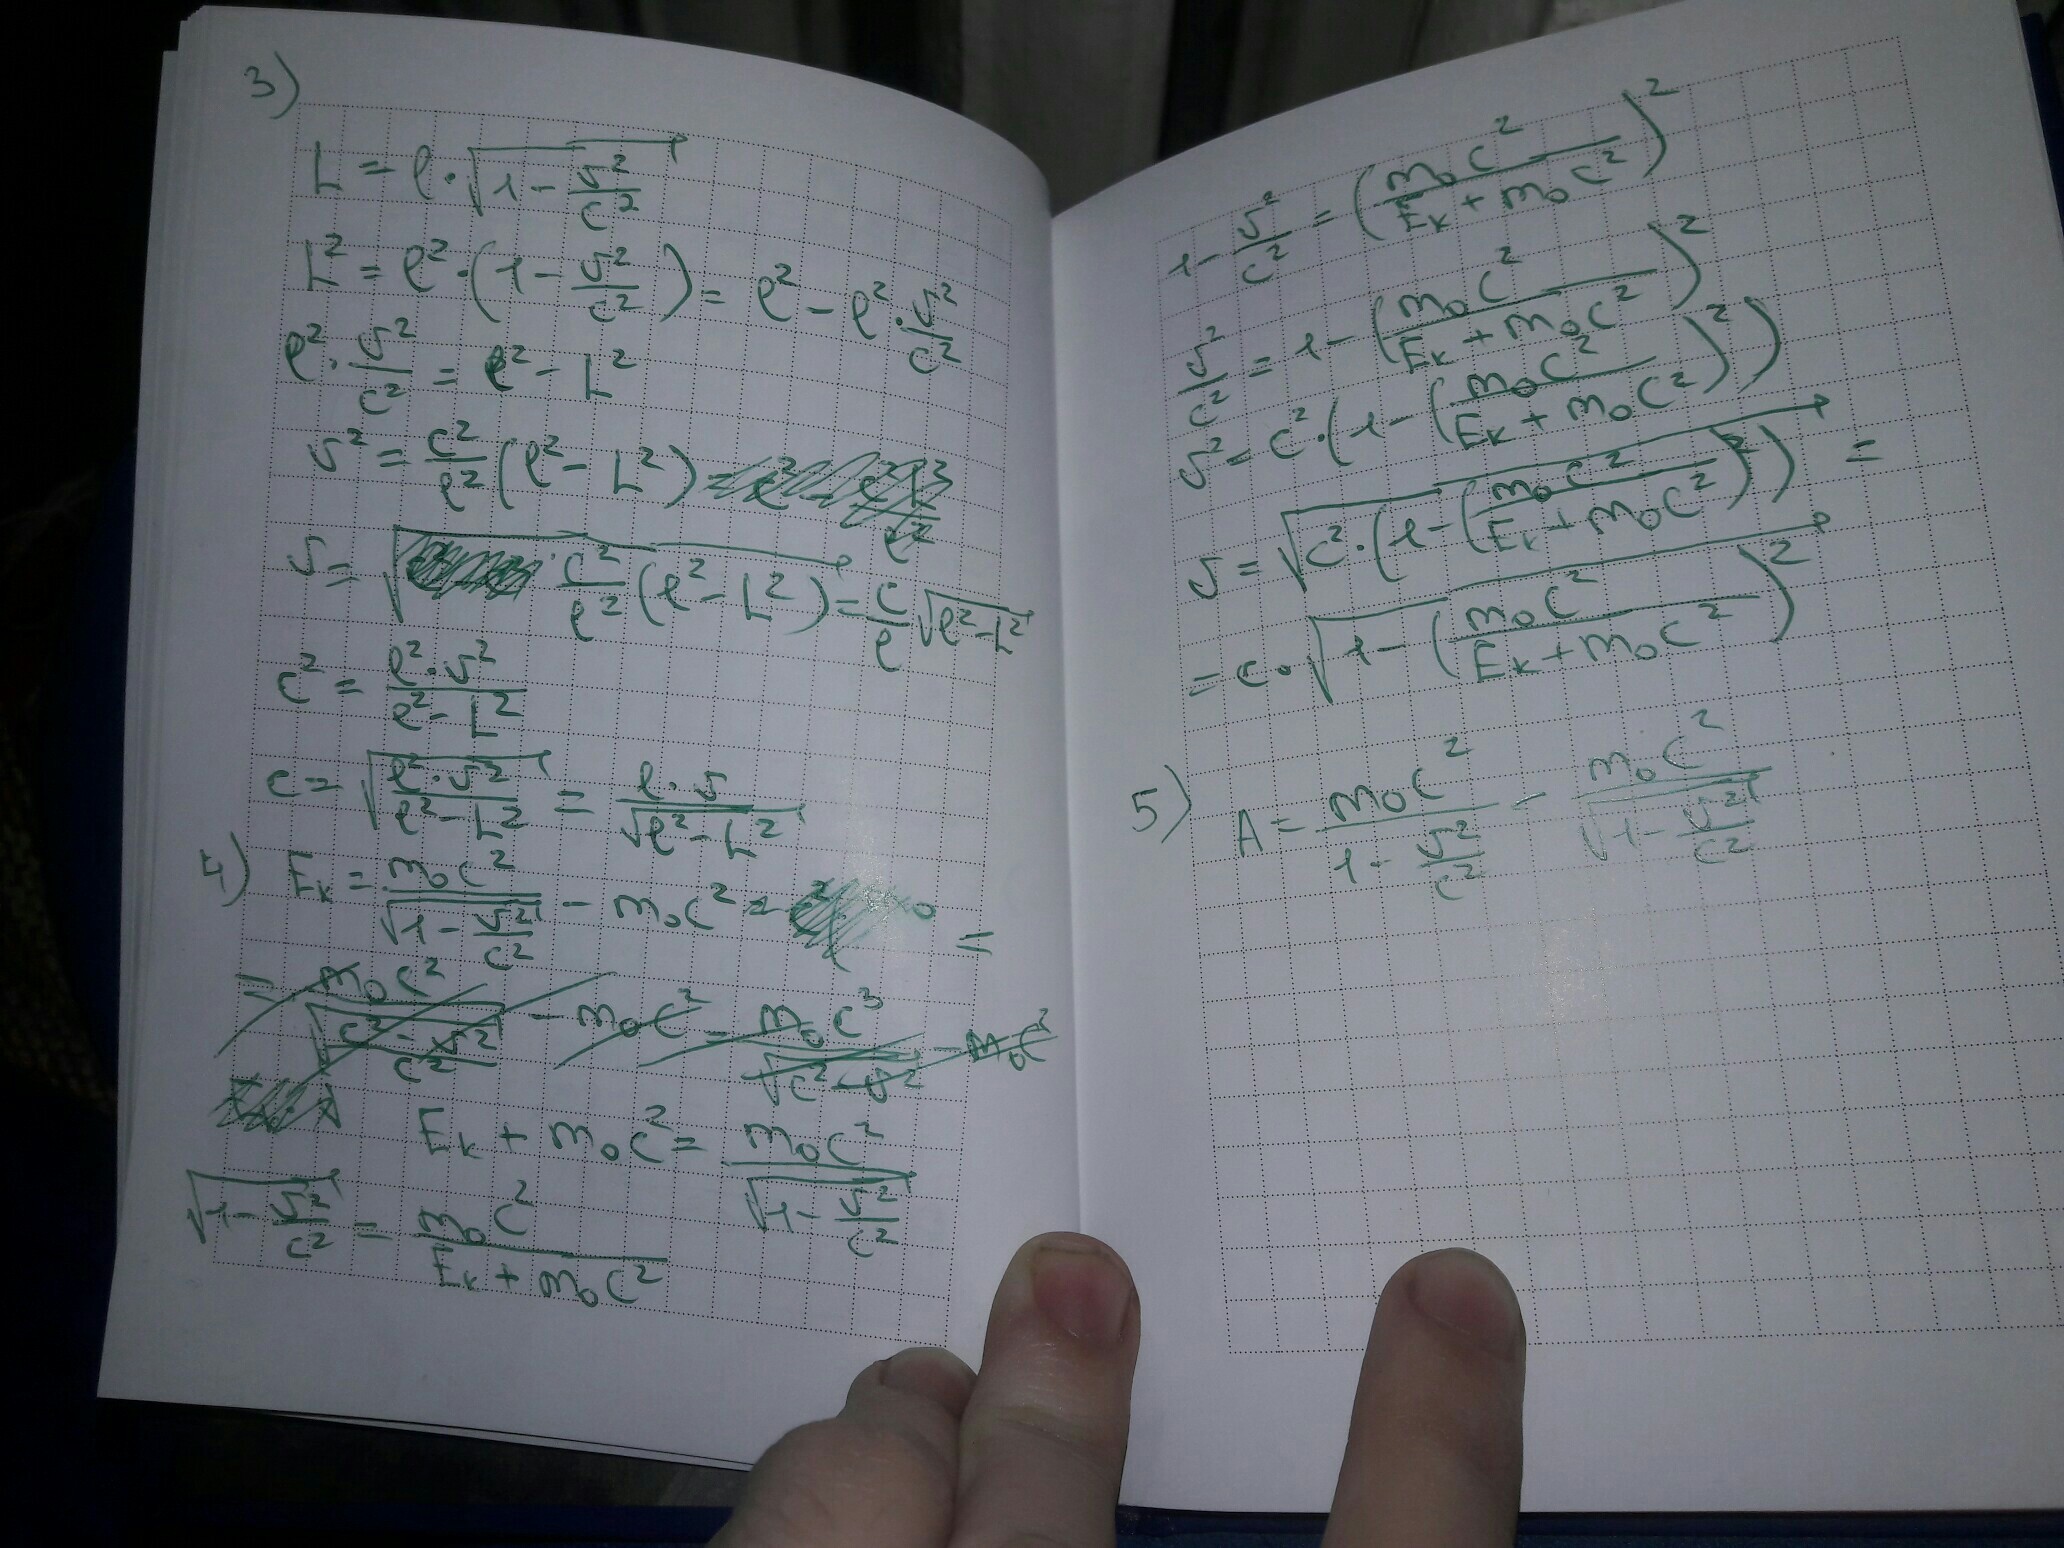 3)
L = l·√(1 - v²/c²)
L² = l²·(1 - v²/c²) = l² - l²·v²/c²
l²·v²/c² = l² - L²
v² = c²/l² (l² - L²)
v = √(c²/l² (l² - L²)) = c/l √(l² - L²)
c² = l²·v²/(l² - L²)
c = √(l²·v²/(l² - L²)) = l·v/√(l² - L²)
4) Eк = m₀c²/√(1 - v²/c²) - m₀c² = =
= m₀c²/√((c² - v²)/c²) - m₀c² = m₀c³/√(c² - v²) - m₀c²
Eк + m₀c² = m₀c²/√(1 - v²/c²)
√(1 - v²/c²) = m₀c²/(Eк + m₀c²)
1 - v²/c² = (m₀c²/(Eк + m₀c²))²
v²/c² = 1 - (m₀c²/(Eк + m₀c²))²
v² = c²·(1 - (m₀c²/(Eк + m₀c²))²)
v = √(c²·(1 - (m₀c²/(Eк + m₀c²))²)) =
= c·√(1 - (m₀c²/(Eк + m₀c²))²)
5) A = m₀c²/(1 - v²/c²) - m₀c²/√(1 - v²/c²)